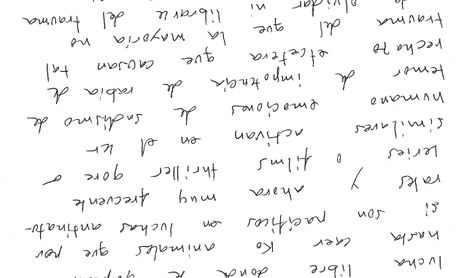 lucha libre donde se
hasta caer KO animales que por
si son pacíficos en luchas antinatu-
rales y ahora muy frecuente
series o films thriller o gore
similares activan en el ser
humano emociones de sadismo de
temor de impotencia de rabia de
rechazo etcetera que causan tal
trauma del que la mayoría no
olvidar ni librarse del trauma